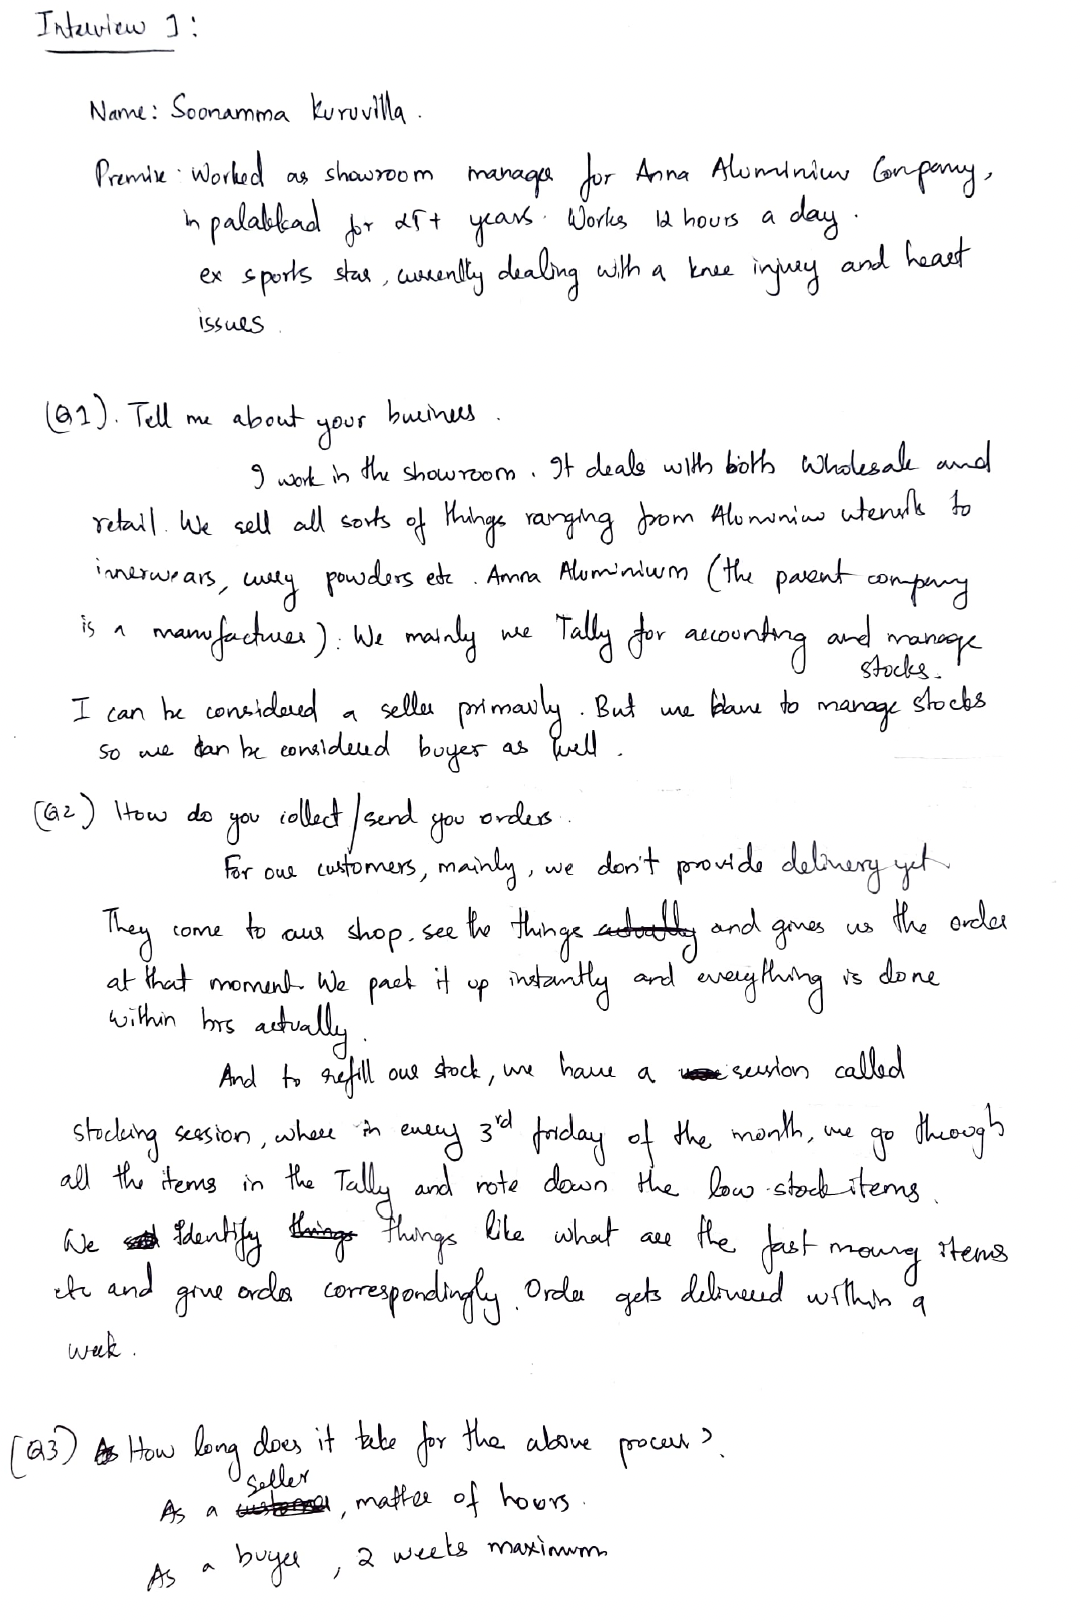 Interview 1:
Name: Soonamma Kuruvilla.
Premise: Worked as showroom manager for Anna Aluminium Company,
in palakkad for 25+ years. Works 12 hours a day.
ex sports star, currently dealing with a knee injury and heart
issues.
(Q1). Tell me about your business.
I work in the showroom. It deals with both wholesale and
retail. We sell all sorts of things ranging from Aluminium utensils to
innerwears, curry powders etc. Anna Aluminium (the parent company
is a manufacturer). We mainly use Tally for accounting and manage
stocks.
I can be considered a seller primarily. But we have to manage stocks
so we can be considered buyer as well.
(Q2) How do you collect/send you orders.
For our customers, mainly, we don't provide delivery yet
They come to our shop, see the things actually and gives us the order
at that moment. We pack it up instantly and everything is done
within hrs actually.
And to refill our stock, we have a session called
stocking session, where in every 3rd friday of the month, we go through
all the items in the Tally and note down the low-stock items.
We Identify things things like what are the fast moving items
etc and give order correspondingly. Order gets delivered within a
week.
(Q3) How long does it take for the above process?
Seller
As a customer, matter of hours.
As a buyer, 2 weeks maximum